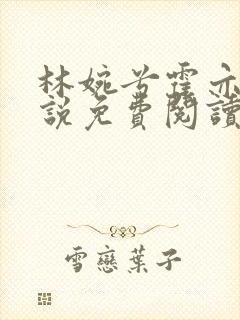 林婉兮霍亦
說免費閱讀
雪戀葉子